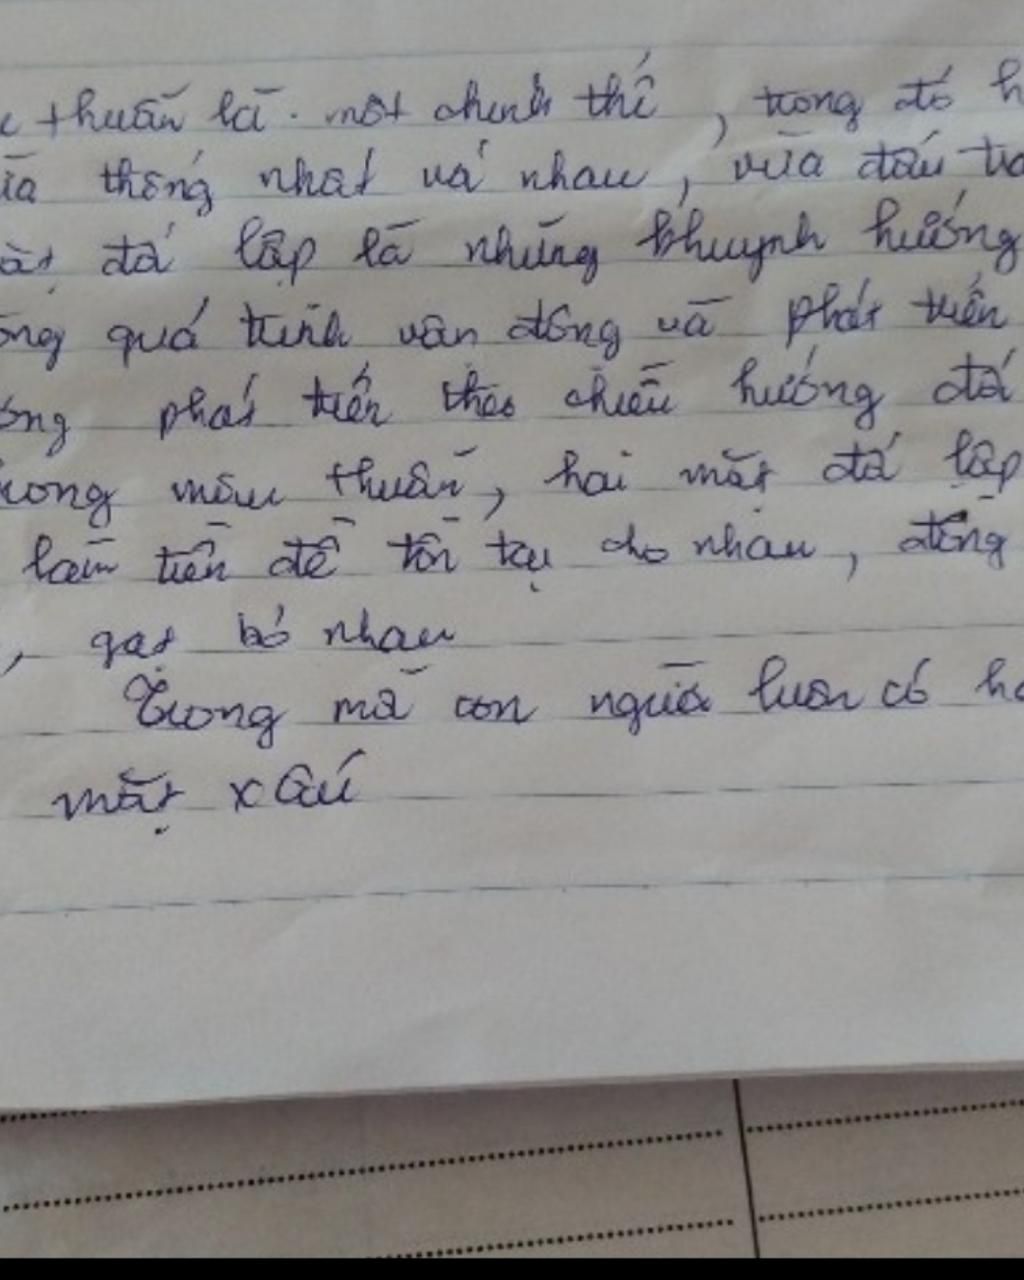 thuẫn là một chỉnh thể, trong đó h
thống nhất với nhau, vừa đấu tra
đối lập là những khuynh hướng
quá trình vận động và phát triển
phát triển theo chiều hướng đối
trong mâu thuẫn, hai mặt đối lập
làm tiền đề tồn tại cho nhau, đồng
, gạt bỏ nhau
Trong mỗi con người luôn có ha
mặt xấu